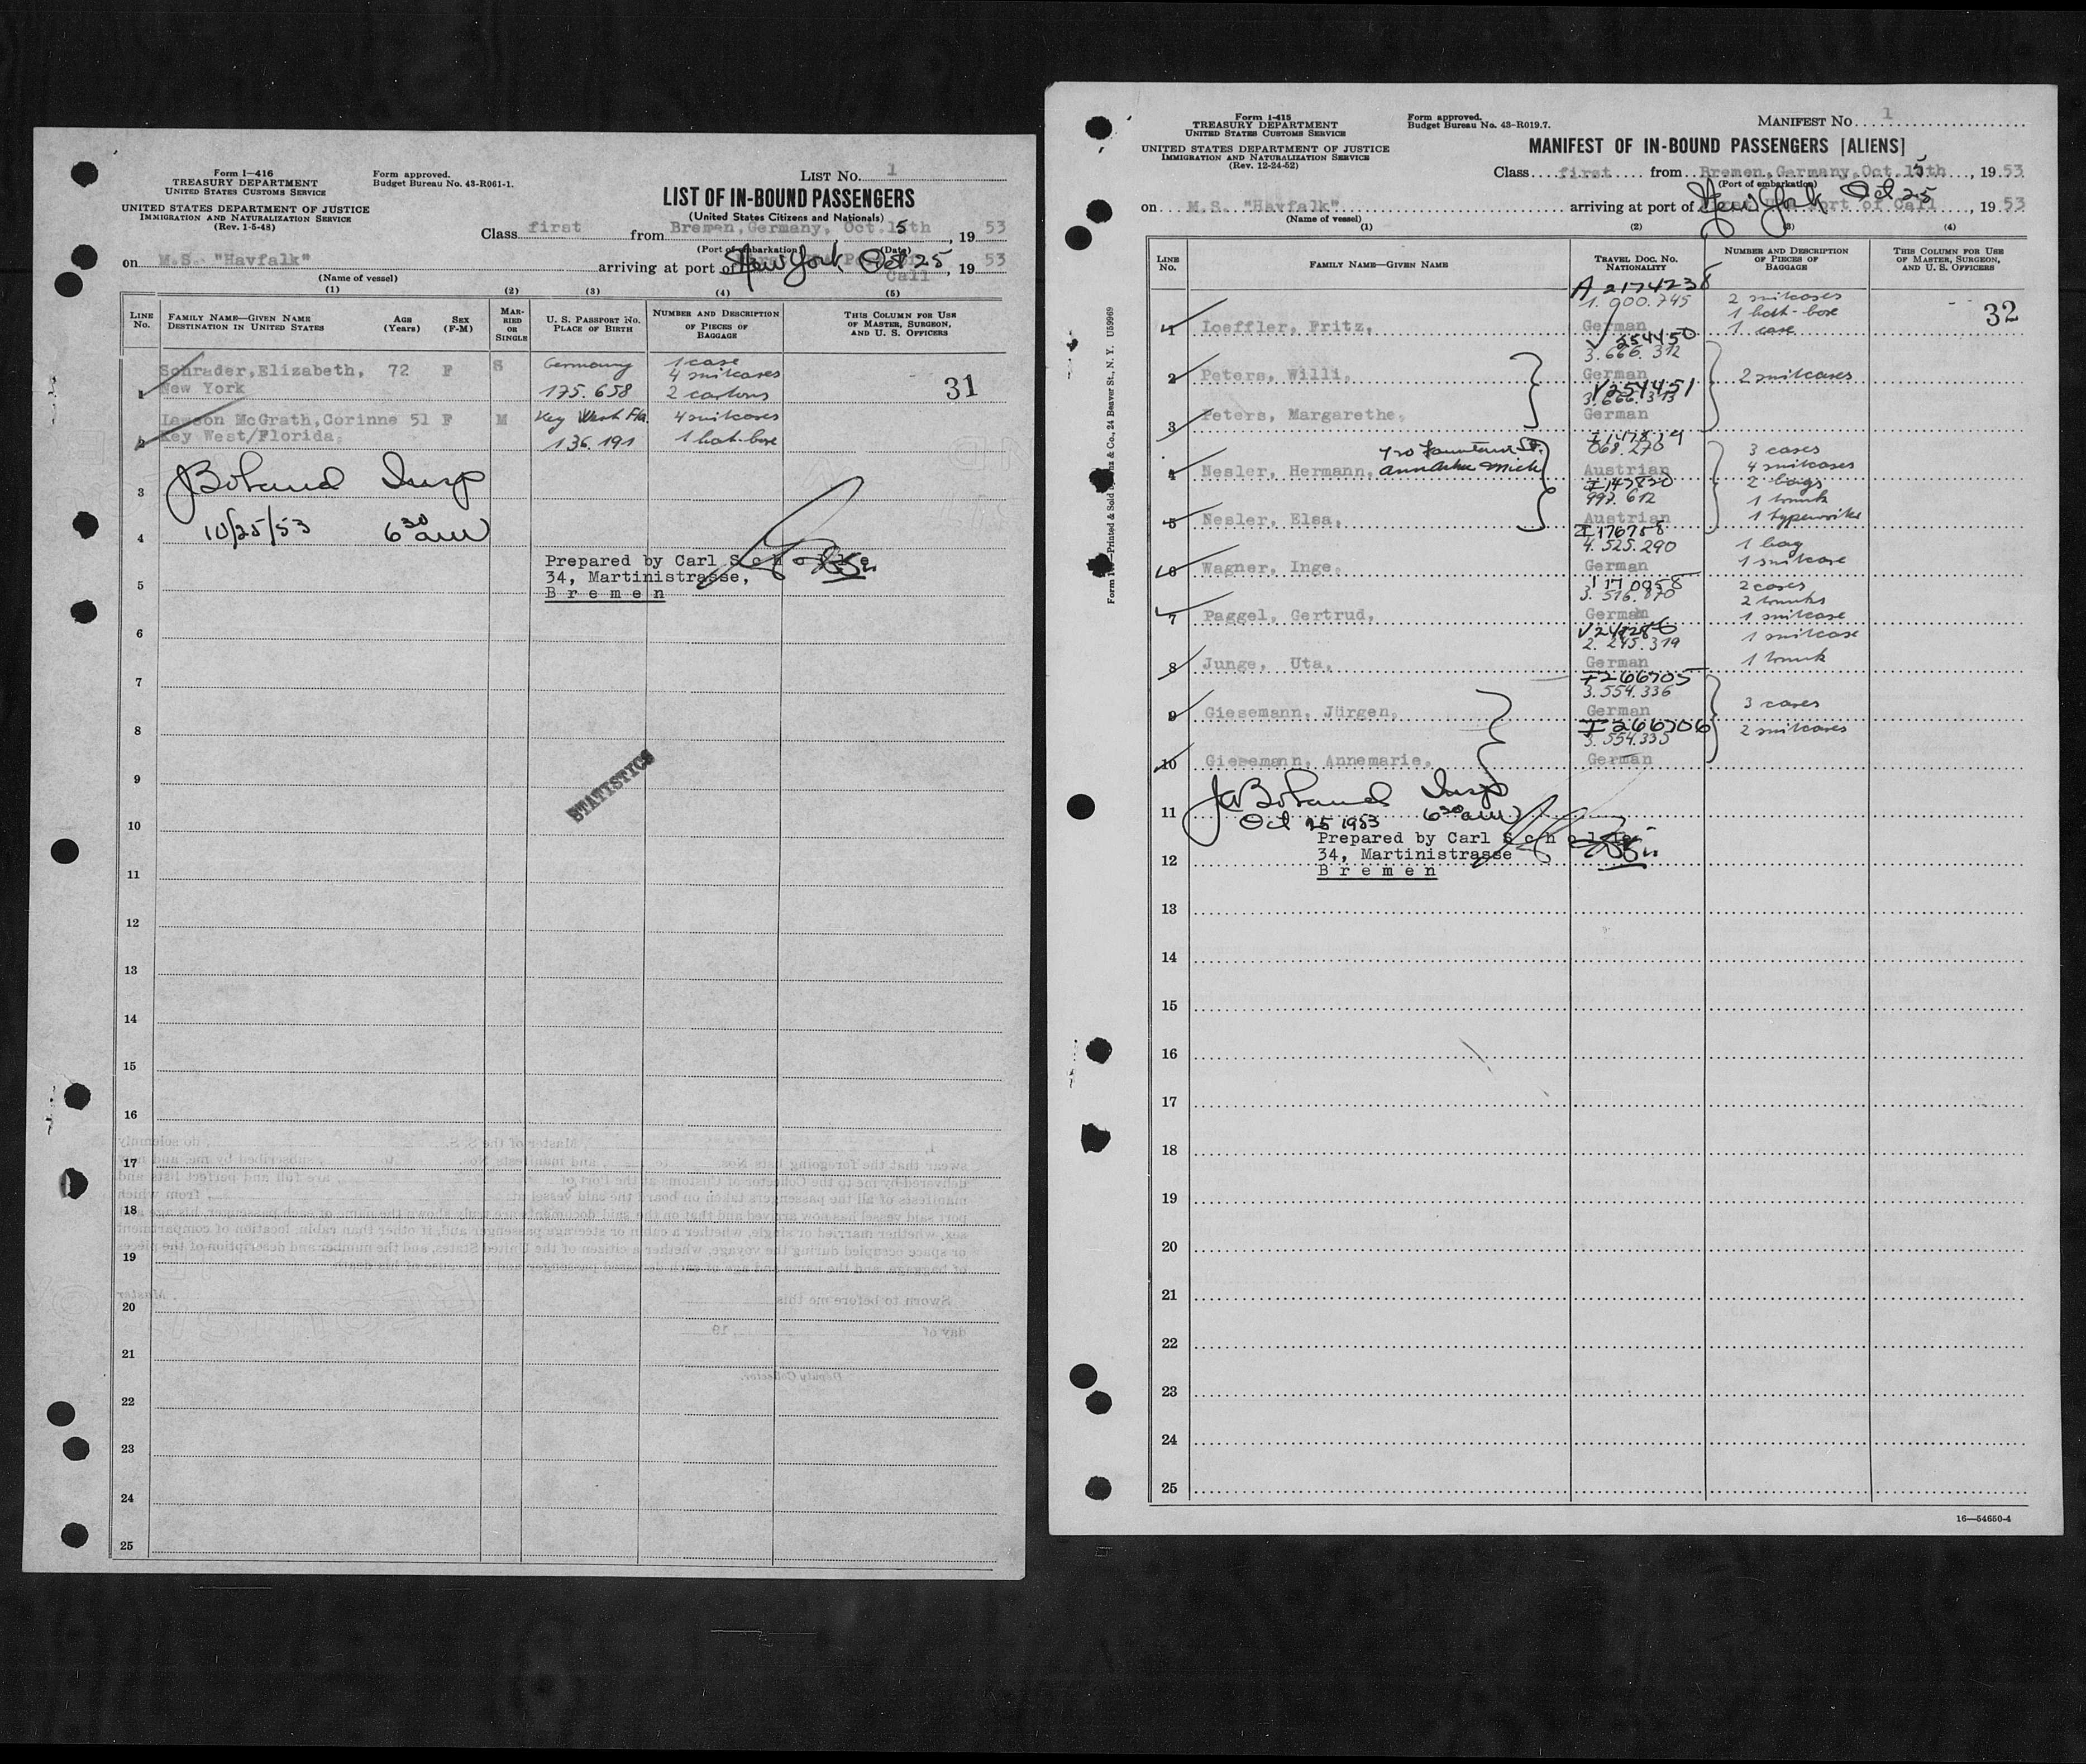 Form I-416
TREASURY DEPARTMENT
UNITED STATES CUSTOMS SERVICE
UNITED STATES DEPARTMENT OF JUSTICE
IMMIGRATION AND NATURALIZATION SERVICE
(Rev. 1-5-48)
Form approved.
Budget Bureau No. 43-R061-1.
LIST No. 1
LIST OF IN-BOUND PASSENGERS
(United States Citizens and Nationals)
Class first from Bremen, Germany, Oct. 15th, 19 53
(Port of embarkation) (Date)
on M.S. "Havfalk" arriving at port of New York Oct 25, 19 53
Call
(Name of vessel)
(1) (2) (3) (4) (5)
LINE No.
FAMILY NAME—GIVEN NAME
DESTINATION IN UNITED STATES
AGE (Years)
SEX (F-M)
MARRIED OR SINGLE
U. S. PASSPORT NO.
PLACE OF BIRTH
NUMBER AND DESCRIPTION OF PIECES OF BAGGAGE
THIS COLUMN FOR USE OF MASTER, SURGEON, AND U. S. OFFICERS
1 Schrader, Elizabeth, 72 F S Germany 1 case
4 suitcases
New York 175.658 2 cartons 31
2 Lawson McGrath, Corinne 51 F M Key West Fla. 4 suitcases
Key West/Florida, 136.191 1 hat-box
3 JBoland Insp
4 10/25/53 6 30 am
Prepared by Carl
5 34, Martinistrasse,
Bremen
6
7
8
STATISTICS
9
10
11
12
13
14
15
16
17
18
19
20
21
22
23
24
25
Form I-415
TREASURY DEPARTMENT
UNITED STATES CUSTOMS SERVICE
UNITED STATES DEPARTMENT OF JUSTICE
IMMIGRATION AND NATURALIZATION SERVICE
(Rev. 12-24-52)
Form approved.
Budget Bureau No. 43-R019.7.
MANIFEST No 1
MANIFEST OF IN-BOUND PASSENGERS [ALIENS]
Class first from Bremen, Germany, Oct. 15th, 19 53
(Port of embarkation)
on M.S. "Havfalk" arriving at port of New York Oct 25, 19 53
(Name of vessel)
(1) (2) (3) (4)
LINE No.
FAMILY NAME—GIVEN NAME
TRAVEL DOC. NO.
NATIONALITY
NUMBER AND DESCRIPTION OF PIECES OF BAGGAGE
THIS COLUMN FOR USE OF MASTER, SURGEON, AND U. S. OFFICERS
A 2174238
1.900.745 2 suitcases
1 hat-box
1 Loeffler, Fritz, German 1 case 32
V 254450
3.666.312
2 Peters, Willi, German 2 suitcases
V 254451
3.666.313
3 Peters, Margarethe, German
068.270 3 cases
4 Nesler, Hermann, Ann Arbor Mich Austrian 4 suitcases
I 147820 2 bags
997.612 1 trunk
5 Nesler, Elsa, Austrian 1 typewriter
I 176758
4.525.290 1 bag
6 Wagner, Inge, German 1 suitcase
2 cases
2 trunks
7 Paggel, Gertrud, German 1 suitcase
2.245.319 1 suitcase
8 Junge, Uta, German 1 trunk
I 266705
3.554.336 3 cases
9 Giesemann, Jürgen, German
I 266706 2 suitcases
3.554.335
10 Giesemann, Annemarie, German
JABoland Insp
11 Oct 25 1953 6 30 am
Prepared by Carl
12 34, Martinistrasse
Bremen
13
14
15
16
17
18
19
20
21
22
23
24
25
16—54650-4